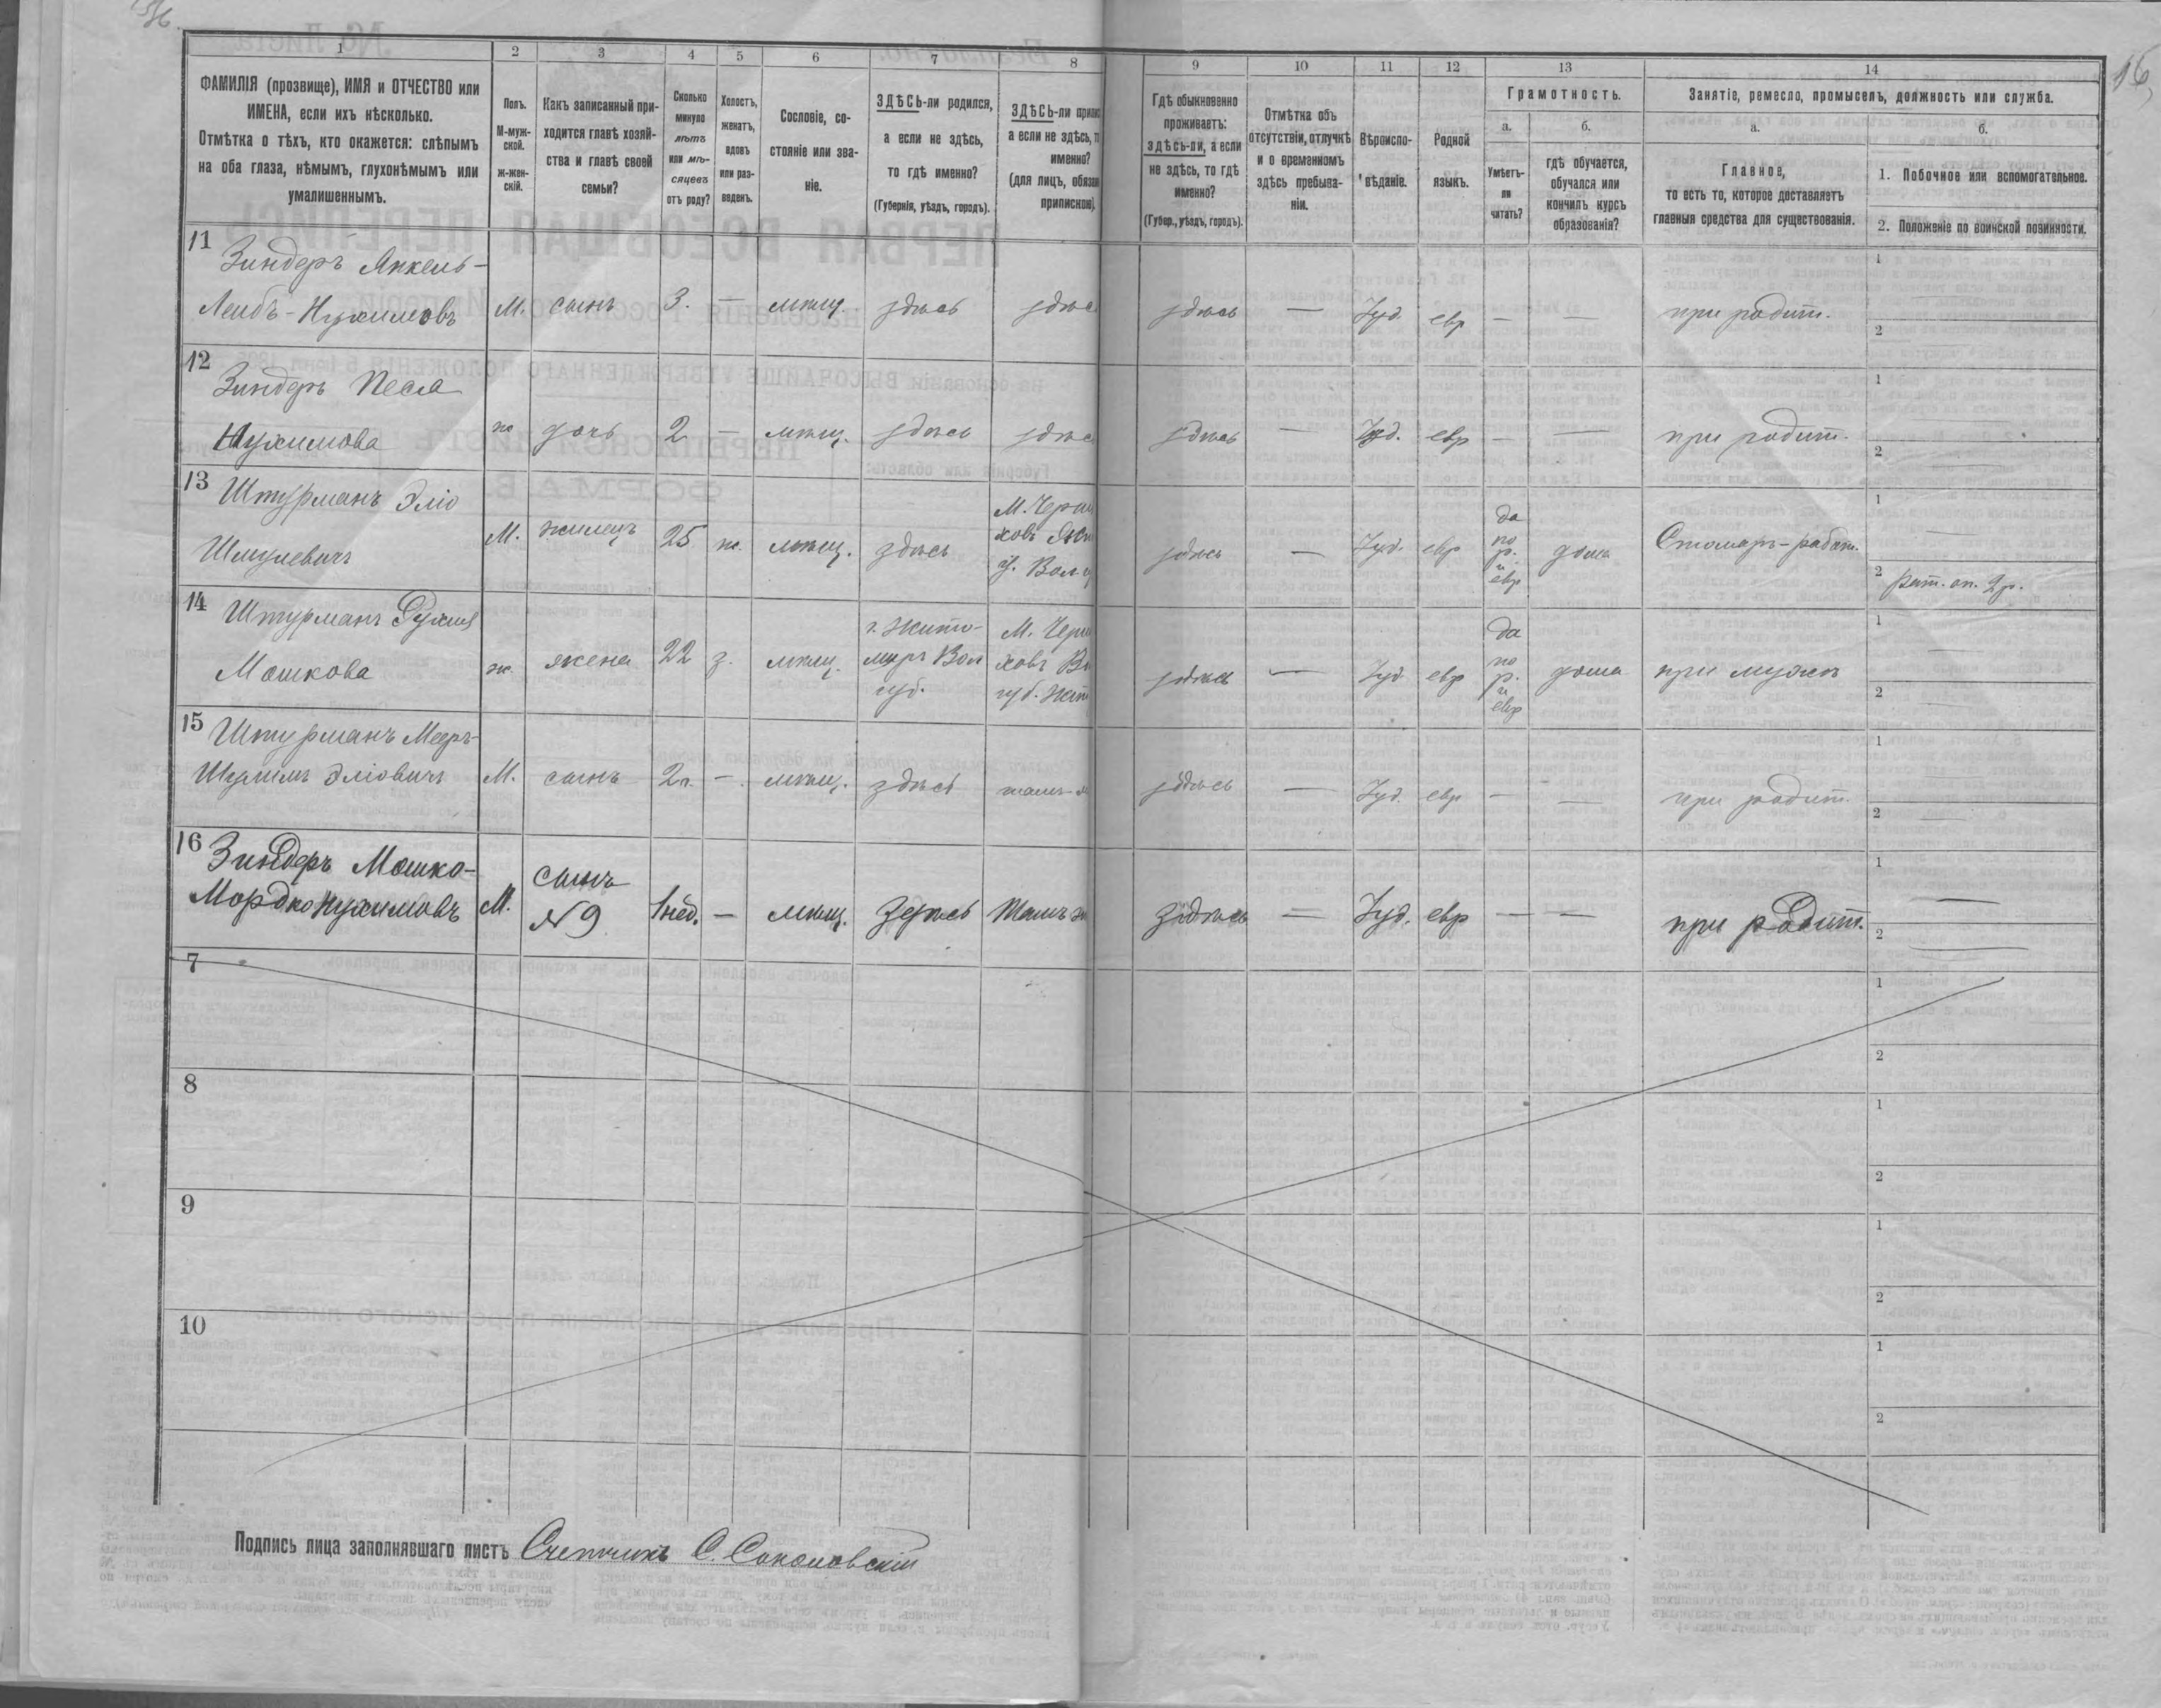 16
1
2
3
4
5
6
7
8
9
10
11
12
13
14
ФАМИЛІЯ (прозвище), ИМЯ и ОТЧЕСТВО или
ИМЕНА, если ихъ нѣсколько.
Отмѣтка о тѣхъ, кто окажется: слѣпымъ
на оба глаза, нѣмымъ, глухонѣмымъ или
умалишеннымъ.
Полъ.
М-муж-
ской.
Ж-жен-
скій.
Какъ записанный при-
ходится главѣ хозяй-
ства и главѣ своей
семьи?
Сколько
минуло
лѣтъ
или мѣ-
сяцевъ
отъ роду?
Холостъ,
женатъ,
вдовъ
или раз-
веденъ.
Сословіе, со-
стояніе или зва-
ніе.
ЗДѢСЬ-ли родился,
а если не здѣсь,
то гдѣ именно?
(Губернія, уѣздъ, городъ).
ЗДѢСЬ-ли
а если не здѣсь,
именно?
(для лицъ,
припискою)
Гдѣ обыкновенно
проживаетъ:
здѣсь-ли, а если
не здѣсь, то гдѣ
именно?
(Губер., уѣздъ, городъ).
Отмѣтка объ
отсутствіи, отлучкѣ
и о временномъ
здѣсь пребыва-
ніи.
Вѣроиспо-
вѣданіе.
Родной
языкъ.
Грамотность.
а.
б.
Умѣетъ-
ли
читать?
гдѣ обучается,
обучался или
кончилъ курсъ
образованія?
Занятіе, ремесло, промыселъ, должность или служба.
а.
б.
Главное,
то есть то, которое доставляетъ
главныя средства для существованія.
1. Побочное или вспомогательное.
2. Положеніе по воинской повинности.
11
Зиндеръ Янкель-
Лейбъ-Нухимовъ
М.
сынъ
3.
—
мѣщ.
здѣсь
здѣс
здѣсь
—
Іуд.
евр
—
—
при родит.
1
2
12
Зиндеръ Песя
Нухимова
ж
дочь
2
—
мѣщ.
здѣсь
здѣс
здѣсь
—
Іуд.
евр
—
—
при родит.
1
2
13
Штурманъ Эліо
Шмулевичъ
М.
жилецъ
25
ж.
мѣщ.
здѣсь
М. Черня
ховъ
здѣсь
—
Іуд.
евр
да
по
р.
и
евр
дома
Столяръ-работ.
1
2
рат. оп. 2р.
14
Штурманъ Рухля
Мошкова
ж.
жена
22
з.
мѣщ.
г. Жито-
миръ Вол
губ.
М. Черн
ховъ Во
губ. Жит
здѣсь
—
Іуд
евр
да
по
р.
и
евр
дома
при мужѣ
1
2
15
Штурманъ Мееръ-
Шулимъ Эліовичъ
М.
сынъ
2л.
—
мѣщ.
здѣсь
тамъ-ж
здѣсь
—
Іуд.
евр
—
—
при родит.
1
2
16
Зиндеръ Мошко-
Мордко Нухимовъ
М.
сынъ
№9
1нед.
—
мѣщ.
здѣсь
Тамъ ж
здѣсь
—
Іуд.
евр
—
—
при родит.
1
2
7
1
2
8
1
2
9
1
2
10
1
2
Подпись лица заполнявшаго листъ Счетчикъ С. Соколовскій